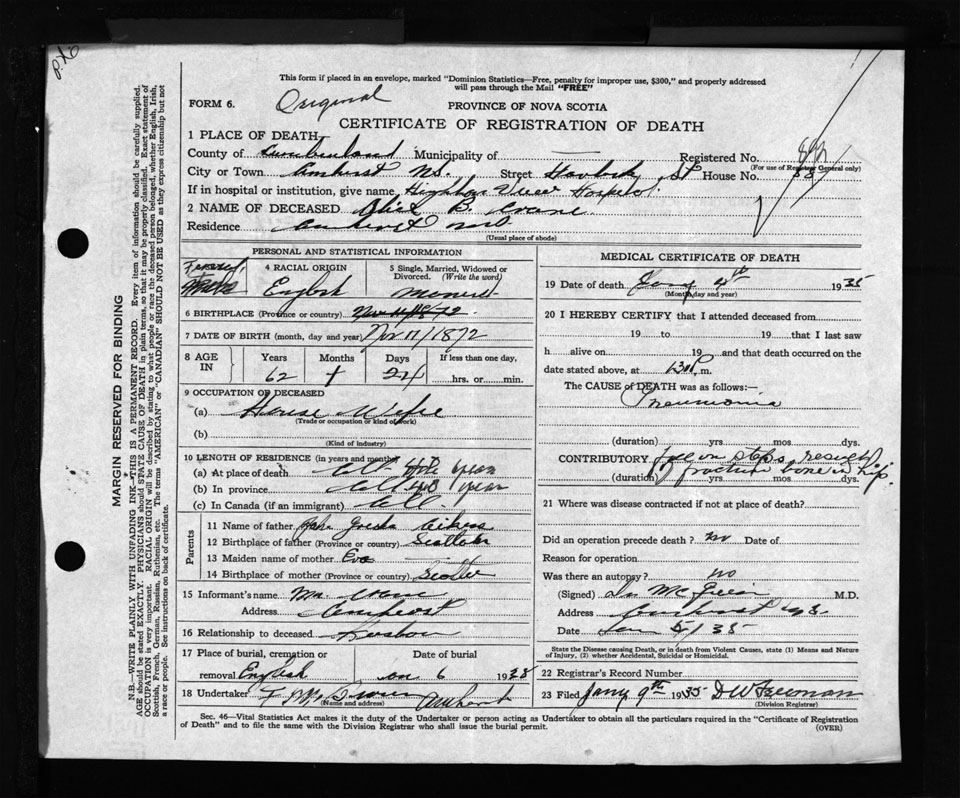 This form if placed in an envelope, marked "Dominion Statistics—Free, penalty for improper use, $300," and properly addressed
will pass through the Mail "FREE"
FORM 6. Original
PROVINCE OF NOVA SCOTIA
CERTIFICATE OF REGISTRATION OF DEATH
1 PLACE OF DEATH—
County of Cumberland Municipality of — Registered No.
(For use of Registrar General only)
City or Town Amherst N.S. Street Havlock St House No.
If in hospital or institution, give name Highland View Hospital
2 NAME OF DECEASED B. Crane
Residence Amherst
(Usual place of abode)
PERSONAL AND STATISTICAL INFORMATION
4 RACIAL ORIGIN English
5 Single, Married, Widowed or Divorced. (Write the word)
6 BIRTHPLACE (Province or country)
7 DATE OF BIRTH (month, day and year) Nov 11/1872
8 AGE IN Years 62 Months 1 Days 24 If less than one day, ....hrs. or....min.
9 OCCUPATION OF DECEASED
(a) House Wife
(Trade or occupation or kind of work)
(b)
(Kind of industry)
10 LENGTH OF RESIDENCE (in years and months)
(a) At place of death
(b) In province
(c) In Canada (if an immigrant) All
Parents
11 Name of father
12 Birthplace of father (Province or country)
13 Maiden name of mother Eva
14 Birthplace of mother (Province or country)
15 Informant's name Crane
Address Amherst
16 Relationship to deceased
17 Place of burial, cremation or removal English
Date of burial 6 1935
18 Undertaker Amherst
(Name and address)
MEDICAL CERTIFICATE OF DEATH
19 Date of death Jany 4th 1935
(Month, day and year)
20 I HEREBY CERTIFY that I attended deceased from
19 to 19 that I last saw
h alive on 19 and that death occurred on the
date stated above, at m.
The CAUSE of DEATH was as follows:—
Pneumonia
(duration) yrs. mos. dys.
CONTRIBUTORY fell on steps
fracture bone in hip.
(duration) yrs. mos. dys.
21 Where was disease contracted if not at place of death?
Did an operation precede death? no Date of
Reason for operation
Was there an autopsy? no
(Signed) M.D.
Address Amherst N.S.
Date Jan 5/35
State the Disease causing Death, or in death from Violent Causes, state (1) Means and
Nature of Injury, (2) whether Accidental, Suicidal or Homicidal.
22 Registrar's Record Number
23 Filed Jany 9th 1935 D W Freeman
(Division Registrar)
Sec. 46—Vital Statistics Act makes it the duty of the Undertaker or person acting as Undertaker to obtain all the particulars required in the "Certificate of Registration
of Death" and to file the same with the Division Registrar who shall issue the burial permit.
(OVER)
MARGIN RESERVED FOR BINDING
N.B.—WRITE PLAINLY WITH UNFADING INK—THIS IS A PERMANENT RECORD. Every item of information should be carefully supplied.
AGE should be stated EXACTLY. PHYSICIANS should STATE CAUSE OF DEATH in plain terms, so that it may be properly classified. Exact statement of
OCCUPATION is very important. RACIAL ORIGIN will be described by stating to what people or race the deceased person belonged, whether English, Irish,
Scottish, French, German, Russian, Ruthenian, etc. The terms "AMERICAN" or "CANADIAN" SHOULD NOT BE USED as they express citizenship but not
a race or people. See instructions on back of certificate.